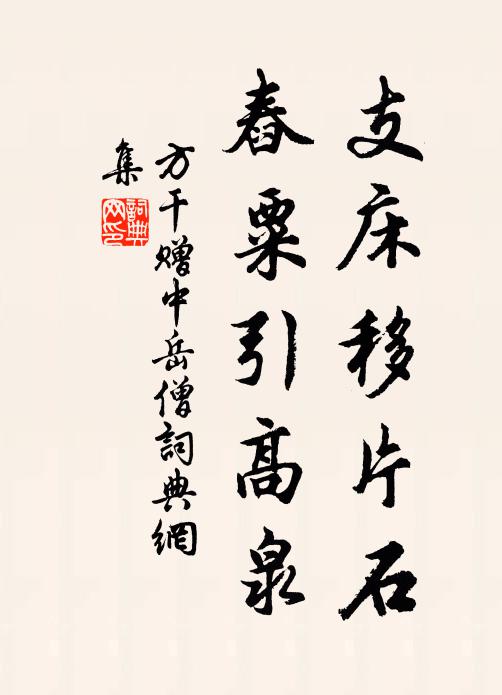 支床移片石
舂粟引高泉
方干赠中岳僧詞典網
集
詞典
网印